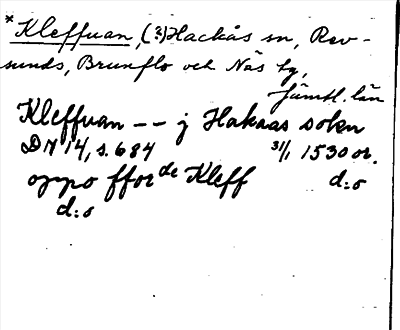 *Kleffuan, (?) Hackås sn, Rev-
sunds, Brunflo och Näs tg,
Jämtl. län
Kleffuan -- j Hakaas sokn
DN 14, s. 684 31/1 1530 or.
oppo fforde Kleff d:o
d:o